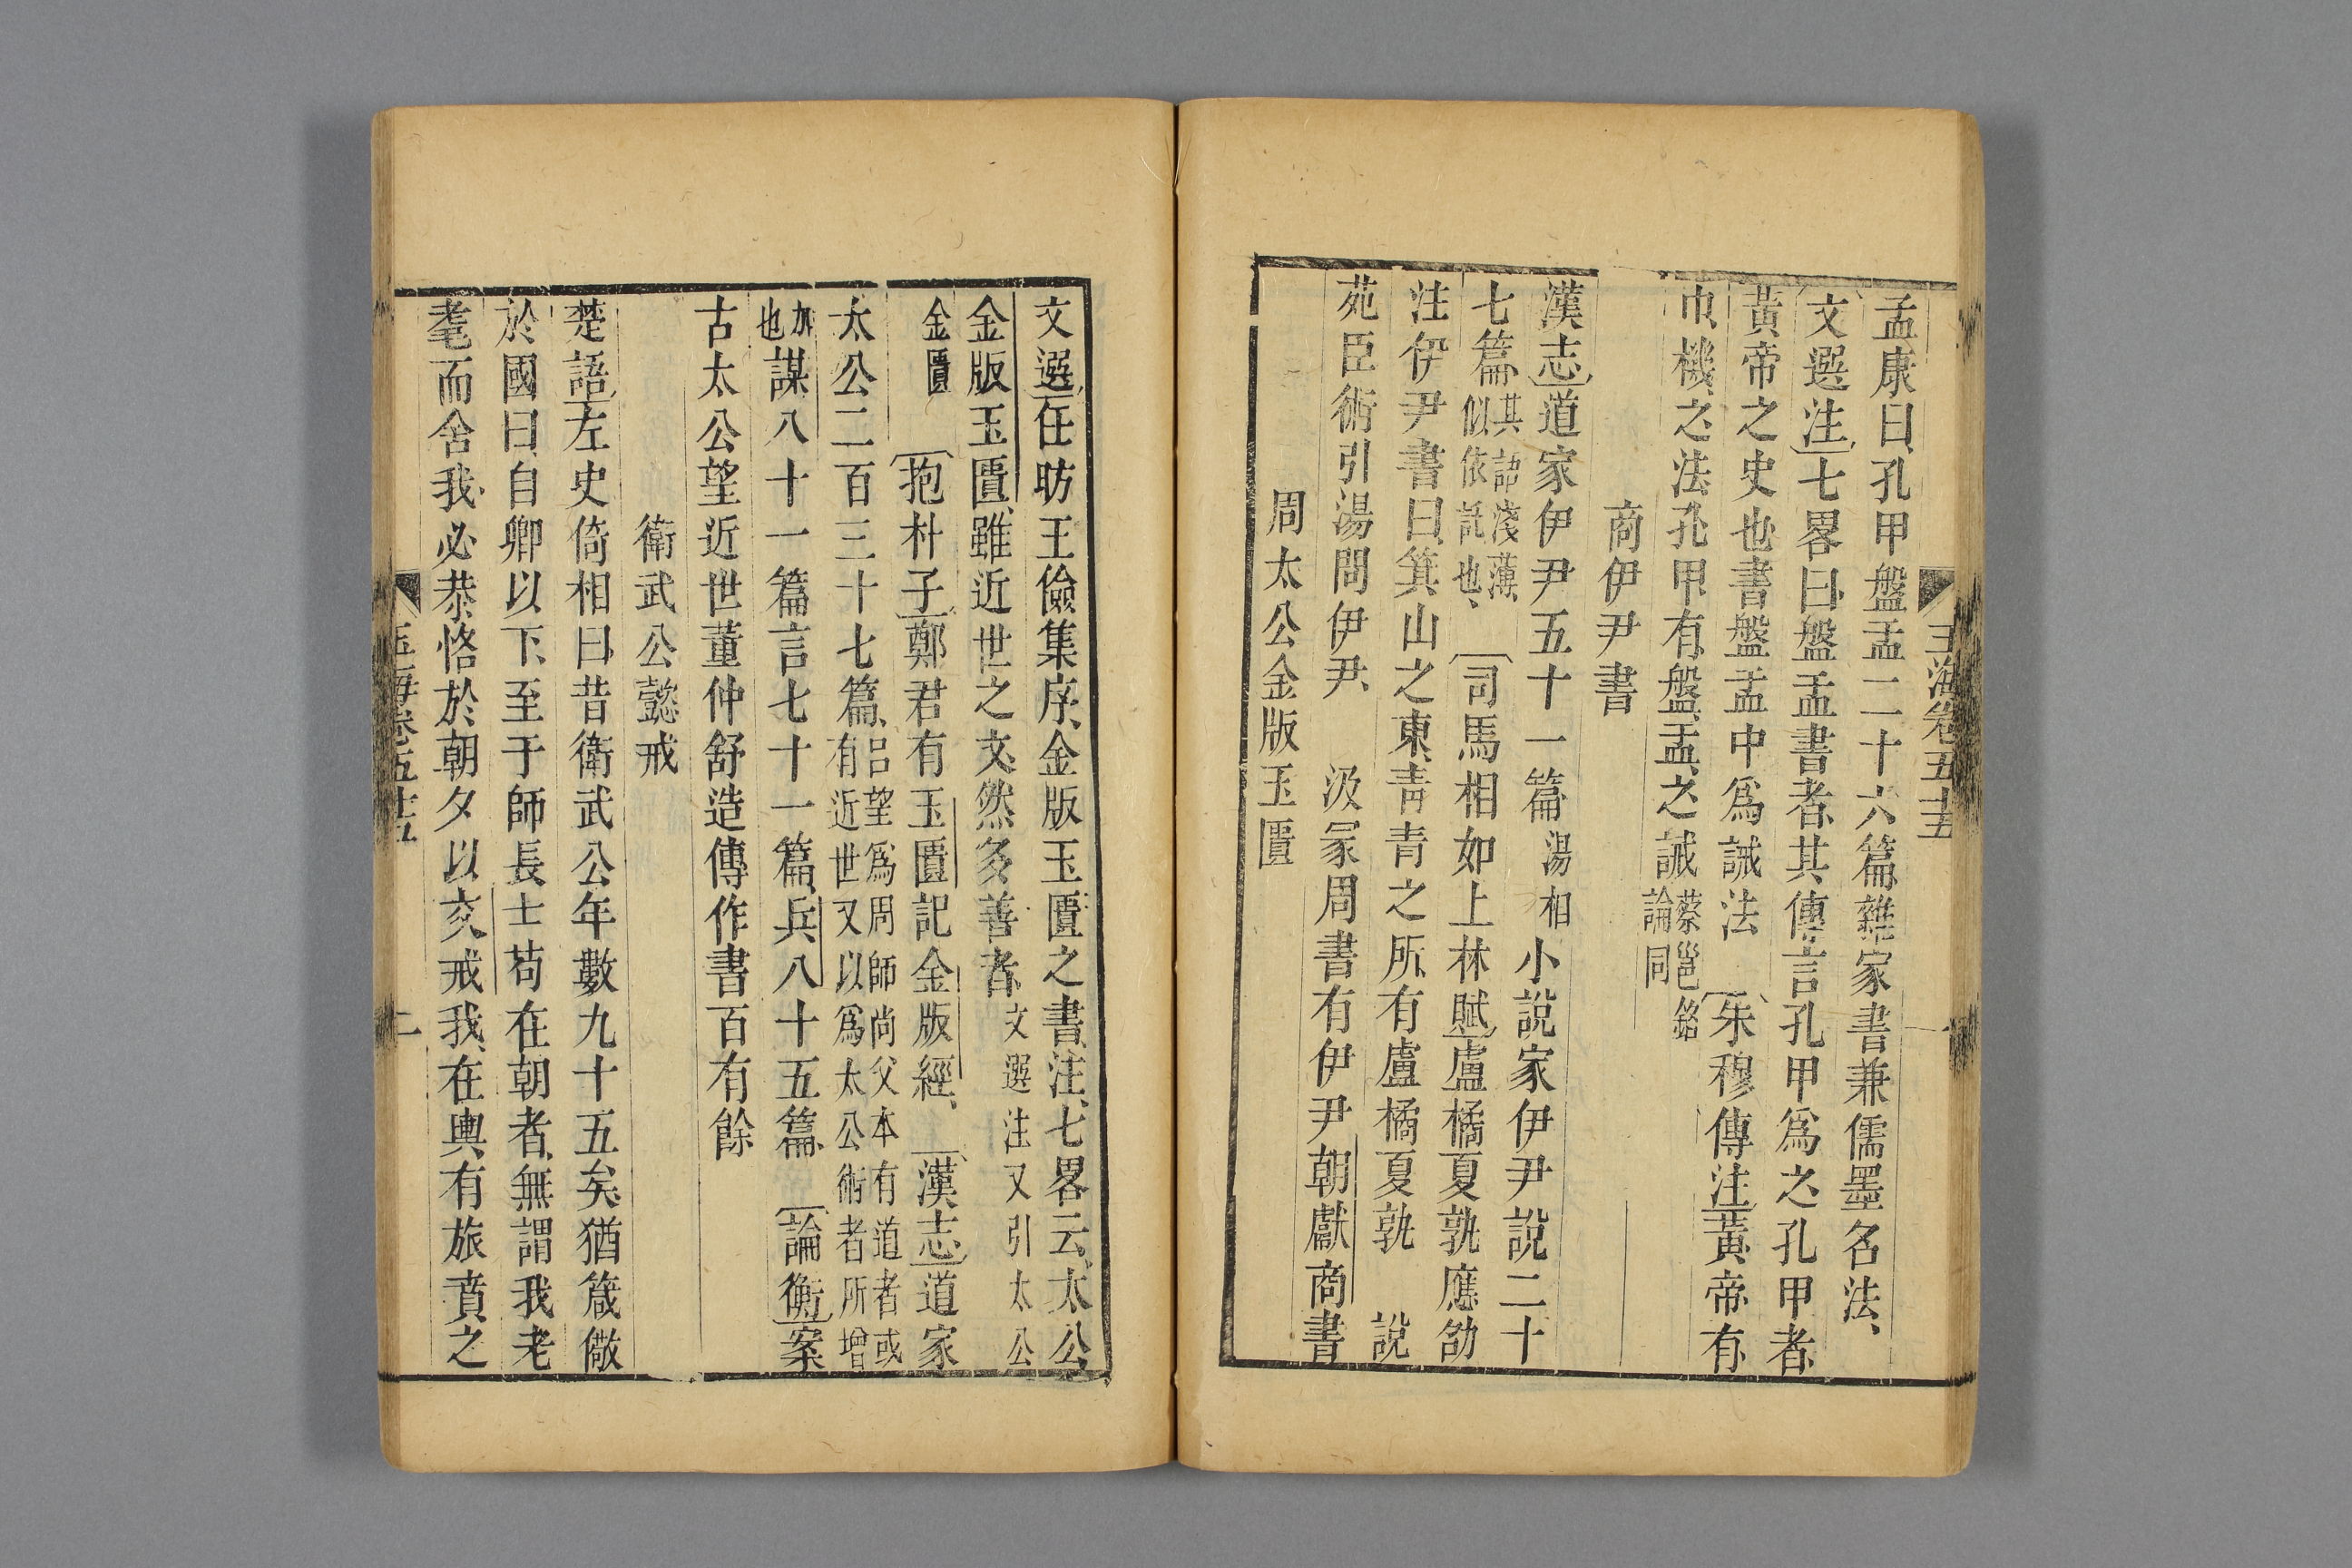 玉海卷五十五
一
孟康曰孔甲盤盂二十六篇雜家書兼儒墨名法
文選注七畧曰盤盂書者其傳言孔甲爲之孔甲者
黃帝之史也書盤盂中爲誡法　朱穆傳注黃帝有
巾機之法孔甲有盤盂之誡蔡邕銘論同
商伊尹書
漢志道家伊尹五十一篇湯相小說家伊尹說二十
七篇其語淺薄似依託也　司馬相如上林賦盧橘夏孰應劭
注伊尹書曰箕山之東靑靑之所有盧橘夏孰　說
苑臣術引湯問伊尹　汲冢周書有伊尹朝獻商書
周太公金版玉匱
文選任昉王儉集序金版玉匱之書注七畧云太公
金版玉匱雖近世之文然多善者文選注又引太公
金匱　抱朴子鄭君有玉匱記金版經　漢志道家
太公二百三十七篇呂望爲周師尚父本有道者或有近世又以爲太公術者所增
加也謀八十一篇言七十一篇兵八十五篇　論衡案
古太公望近世董仲舒造傳作書百有餘
衛武公懿戒
楚語左史倚相曰昔衛武公年數九十五矣猶箴儆
於國曰自卿以下至于師長士苟在朝者無謂我老
耄而舍我必恭恪於朝夕以交戒我在輿有旅賁之
玉海卷五十五
二